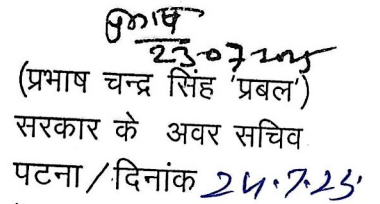 प्रभाष
23.07.2025
(प्रभाष चन्द्र सिंह 'प्रबल')
सरकार के अवर सचिव
पटना/दिनांक 24.7.25.